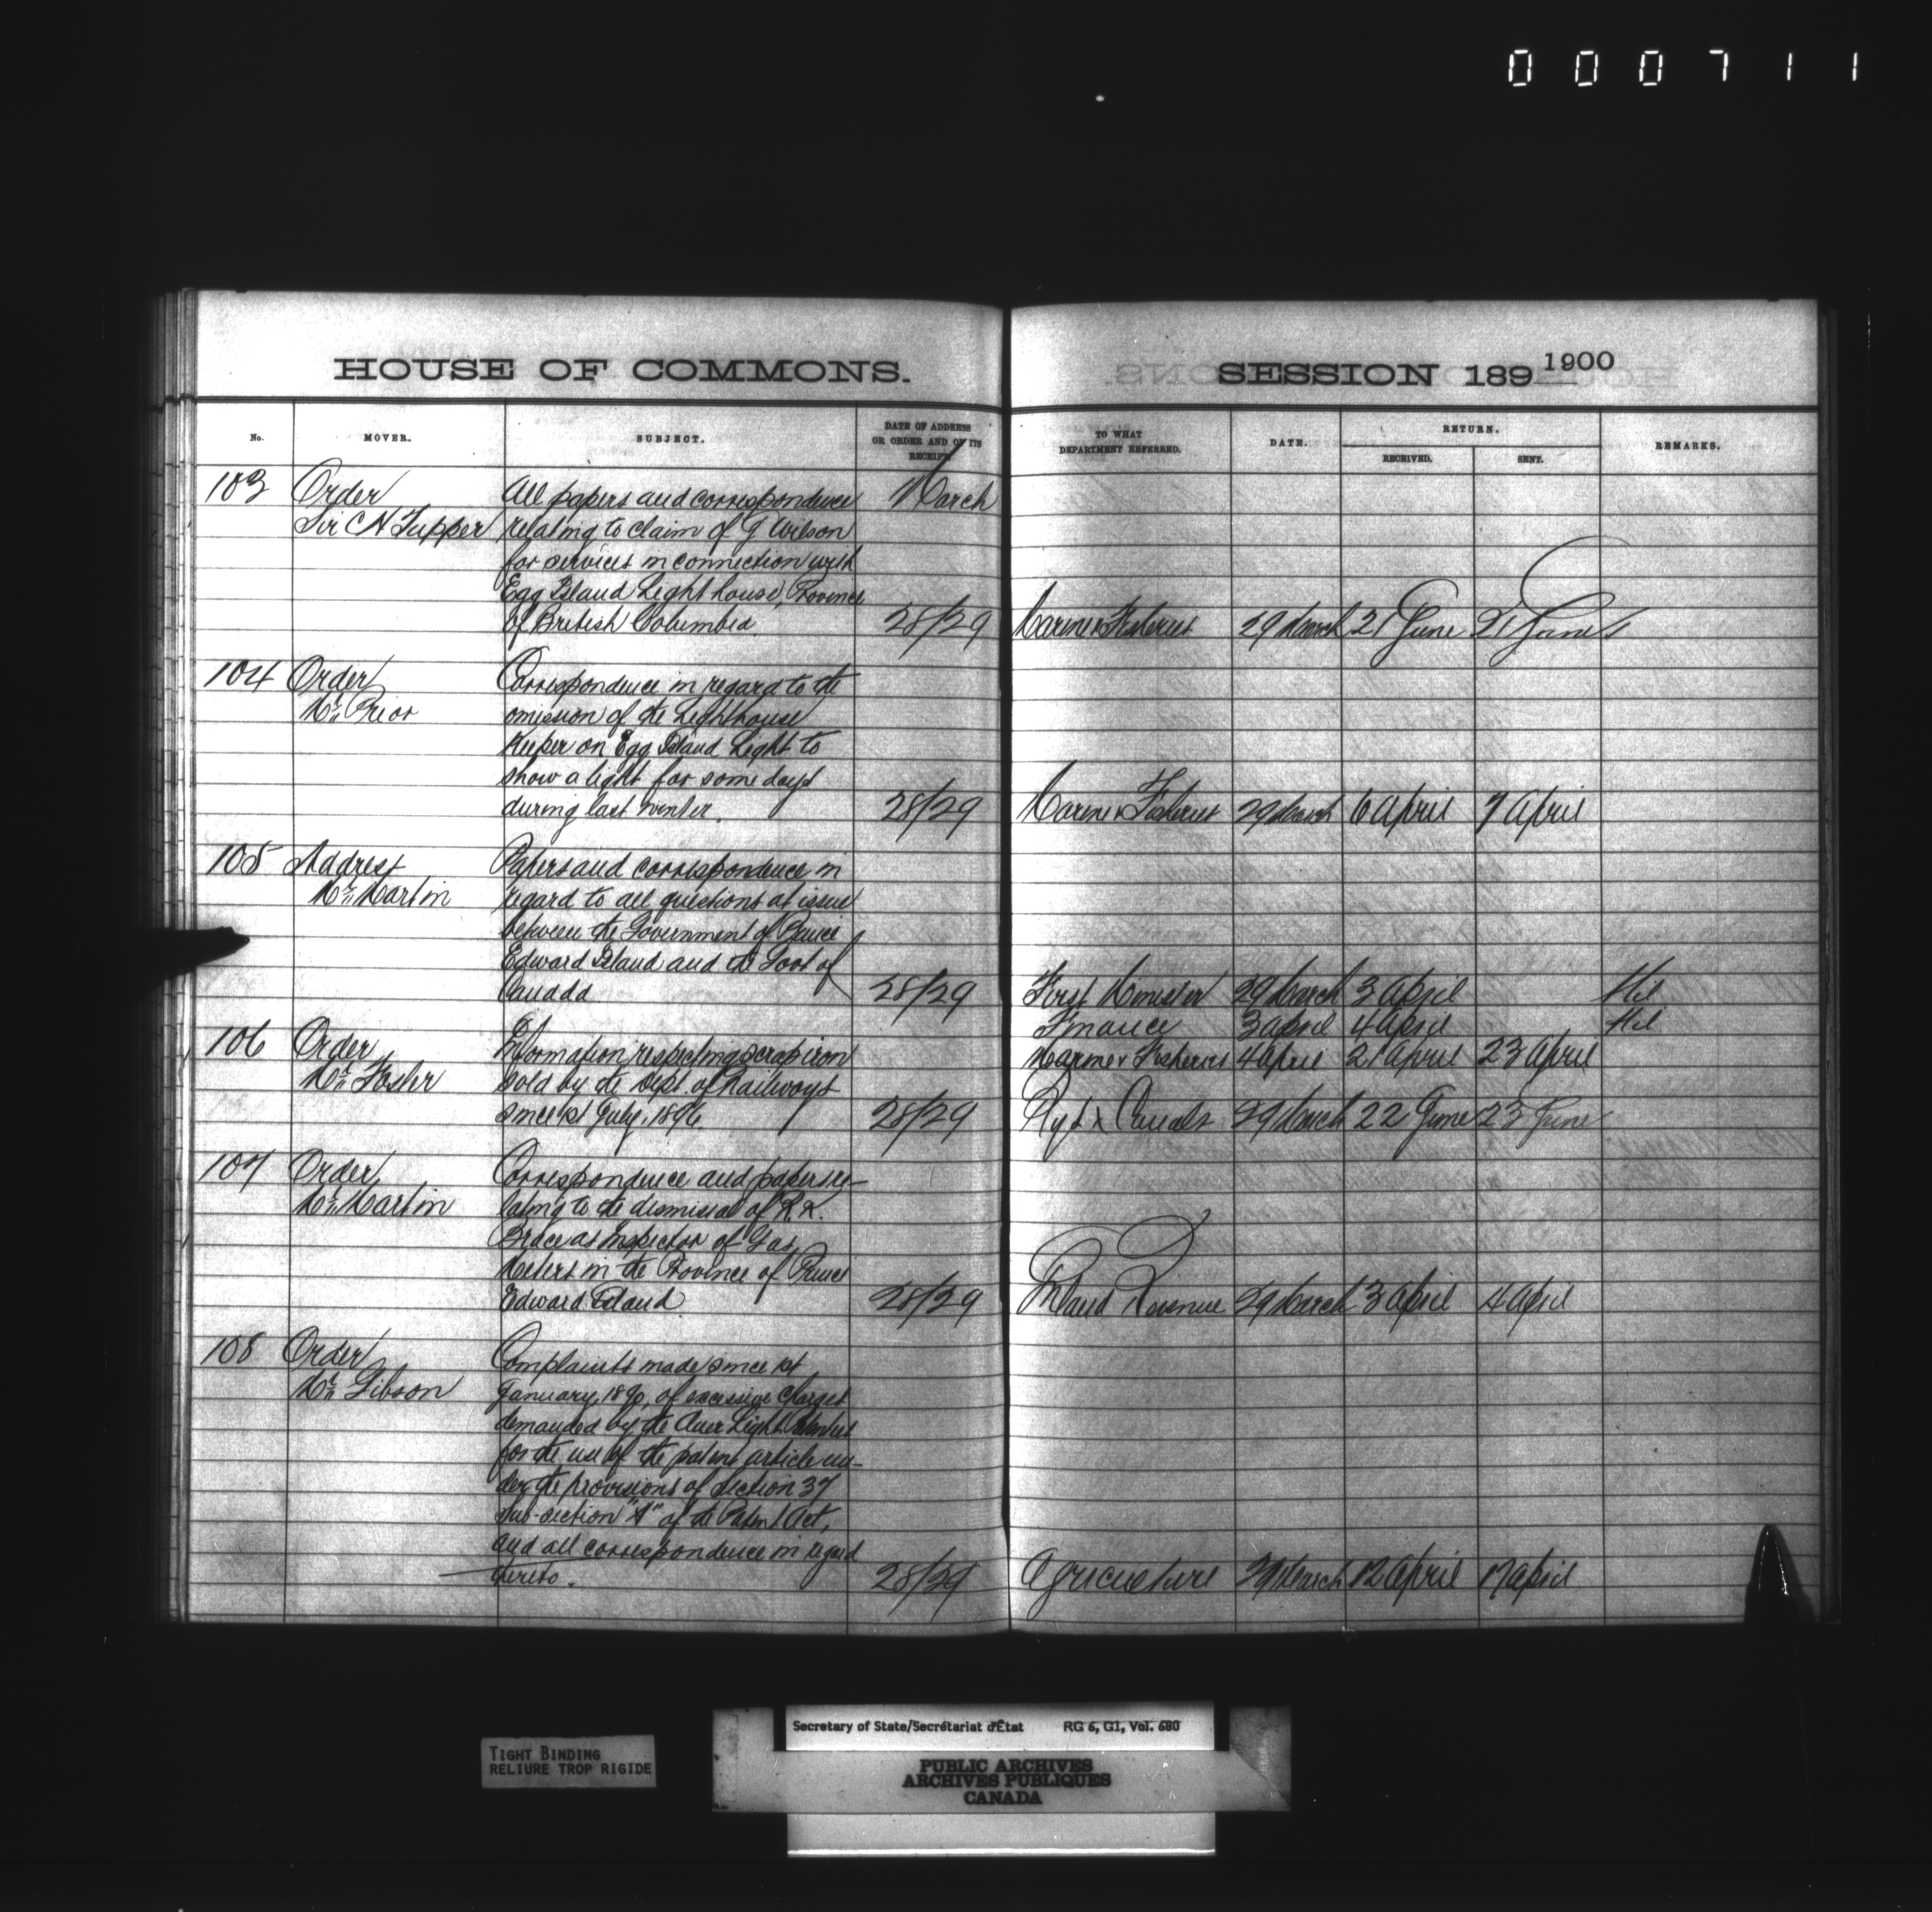 000711
HOUSE OF COMMONS.
SESSION 189 1900
No.
MOVER.
SUBJECT.
DATE OF ADDRESS
OR ORDER AND OF ITS
RECEIPT.
TO WHAT
DEPARTMENT REFERRED.
DATE.
RETURN.
RECEIVED.
SENT.
REMARKS.
103 Order All papers and correspondence March
Sir C H Tupper relating to claim of G Wilson
for services in connection with
Egg Island Light house, Province
of British Columbia 28/29 Marine & Fisheries 29 March 21 June 21 June
104 Order Correspondence in regard to the
Mr. Prior omission of the Lighthouse
Keeper on Egg Island Light to
show a light for some days
during last winter. 28/29 Marine & Fisheries 29 March 6 April 7 April
105 Address Papers and correspondence in
Mr. Martin regard to all questions at issue
between the Government of Prince
Edward Island and the Govt of
Canada 28/29 First Minister 29 March 3 April Nil
Finance 3 April 4 April Nil
106 Order Information respecting scrap iron Marine & Fisheries 4 April 21 April 23 April
Mr. Foster sold by the Dept. of Railways
since 1st July, 1896. 28/29 Rys & Canals 29 March 22 June 23 June
107 Order Correspondence and papers re-
Mr. Martin lating to the dismissal of R.R.
Brace as Inspector of Gas
Meters in the Province of Prince
Edward Island 28/29 Inland Revenue 29 March 3 April 4 April
108 Order Complaints made since 1st
Mr. Gibson January, of excessive charges
demanded by the Auer Light
for the use of the patent article un-
der the provisions of Section 37
Sub-section "A" of the Patent Act,
and all correspondence in regard
thereto. 28/29 Agriculture 29 March 12 April 17 April
TIGHT BINDING
RELIURE TROP RIGIDE
Secretary of State/Secrétariat d'État RG 6, G1, Vol. 680
PUBLIC ARCHIVES
ARCHIVES PUBLIQUES
CANADA